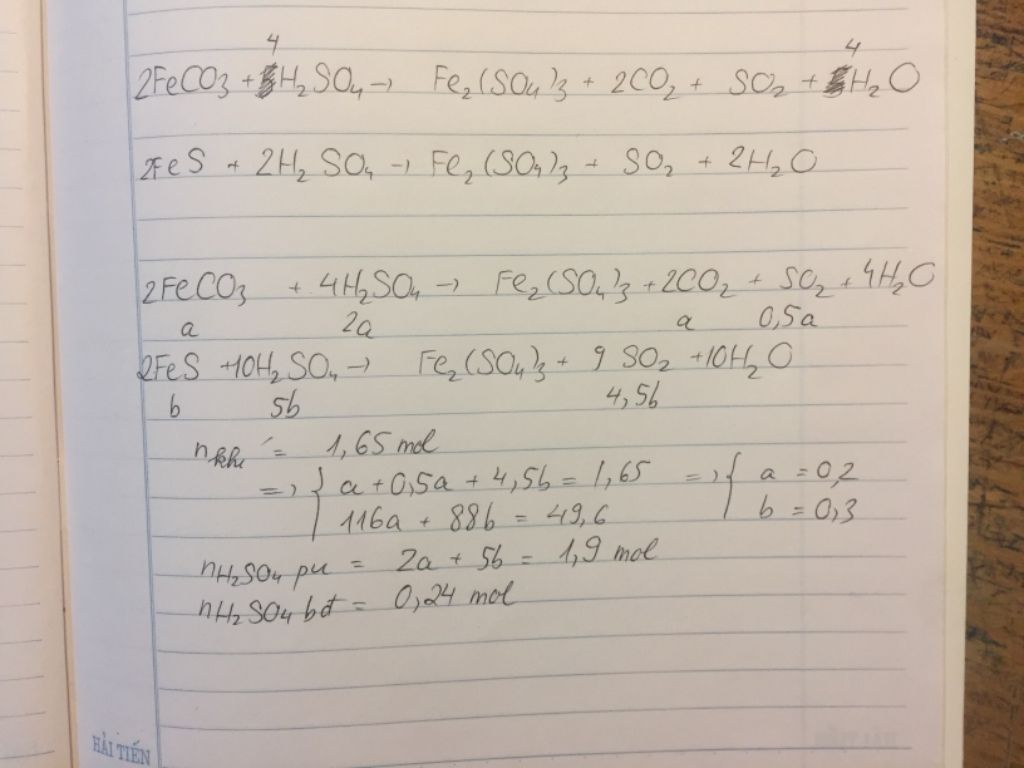 4 4
2FeCO3 + H2SO4 → Fe2(SO4)3 + 2CO2 + SO2 + H2O
2FeS + 2H2SO4 → Fe2(SO4)3 + SO2 + 2H2O
2FeCO3 + 4H2SO4 → Fe2(SO4)3 + 2CO2 + SO2 + 4H2O
a 2a a 0,5a
2FeS + 10H2SO4 → Fe2(SO4)3 + 9 SO2 + 10H2O
b 5b 4,5b
nkhí = 1,65 mol
=> { a + 0,5a + 4,5b = 1,65 => { a = 0,2
116a + 88b = 49,6 b = 0,3
nH2SO4 pu = 2a + 5b = 1,9 mol
nH2SO4 bđ = 0,24 mol
HẢI TIẾN